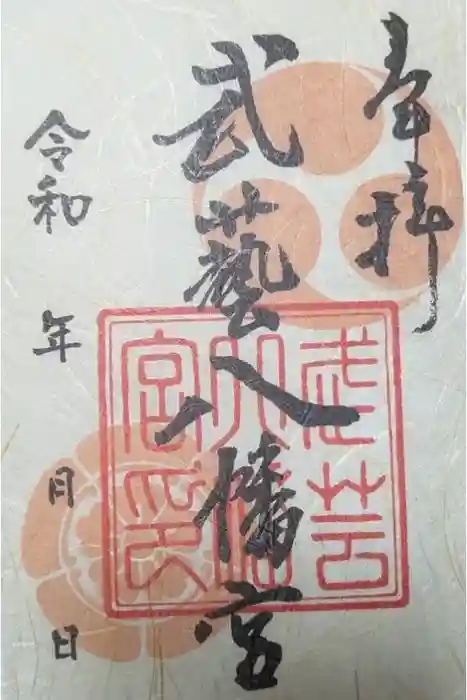 奉拝
武藝八幡宮
武芸
八幡
宮印
令和 年 月 日